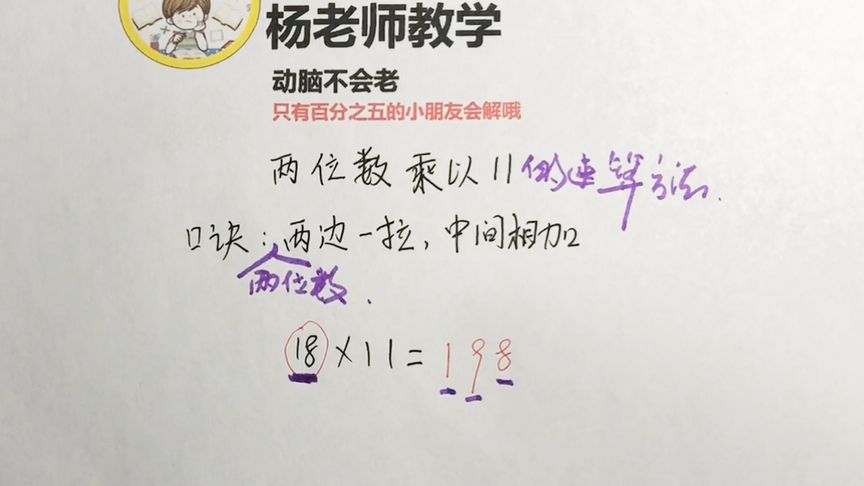 杨老师教学
动脑不会老
只有百分之五的小朋友会解哦
两位数乘以11的速算方法.
口诀:两边一拉,中间相加
两位数.
18×11=198